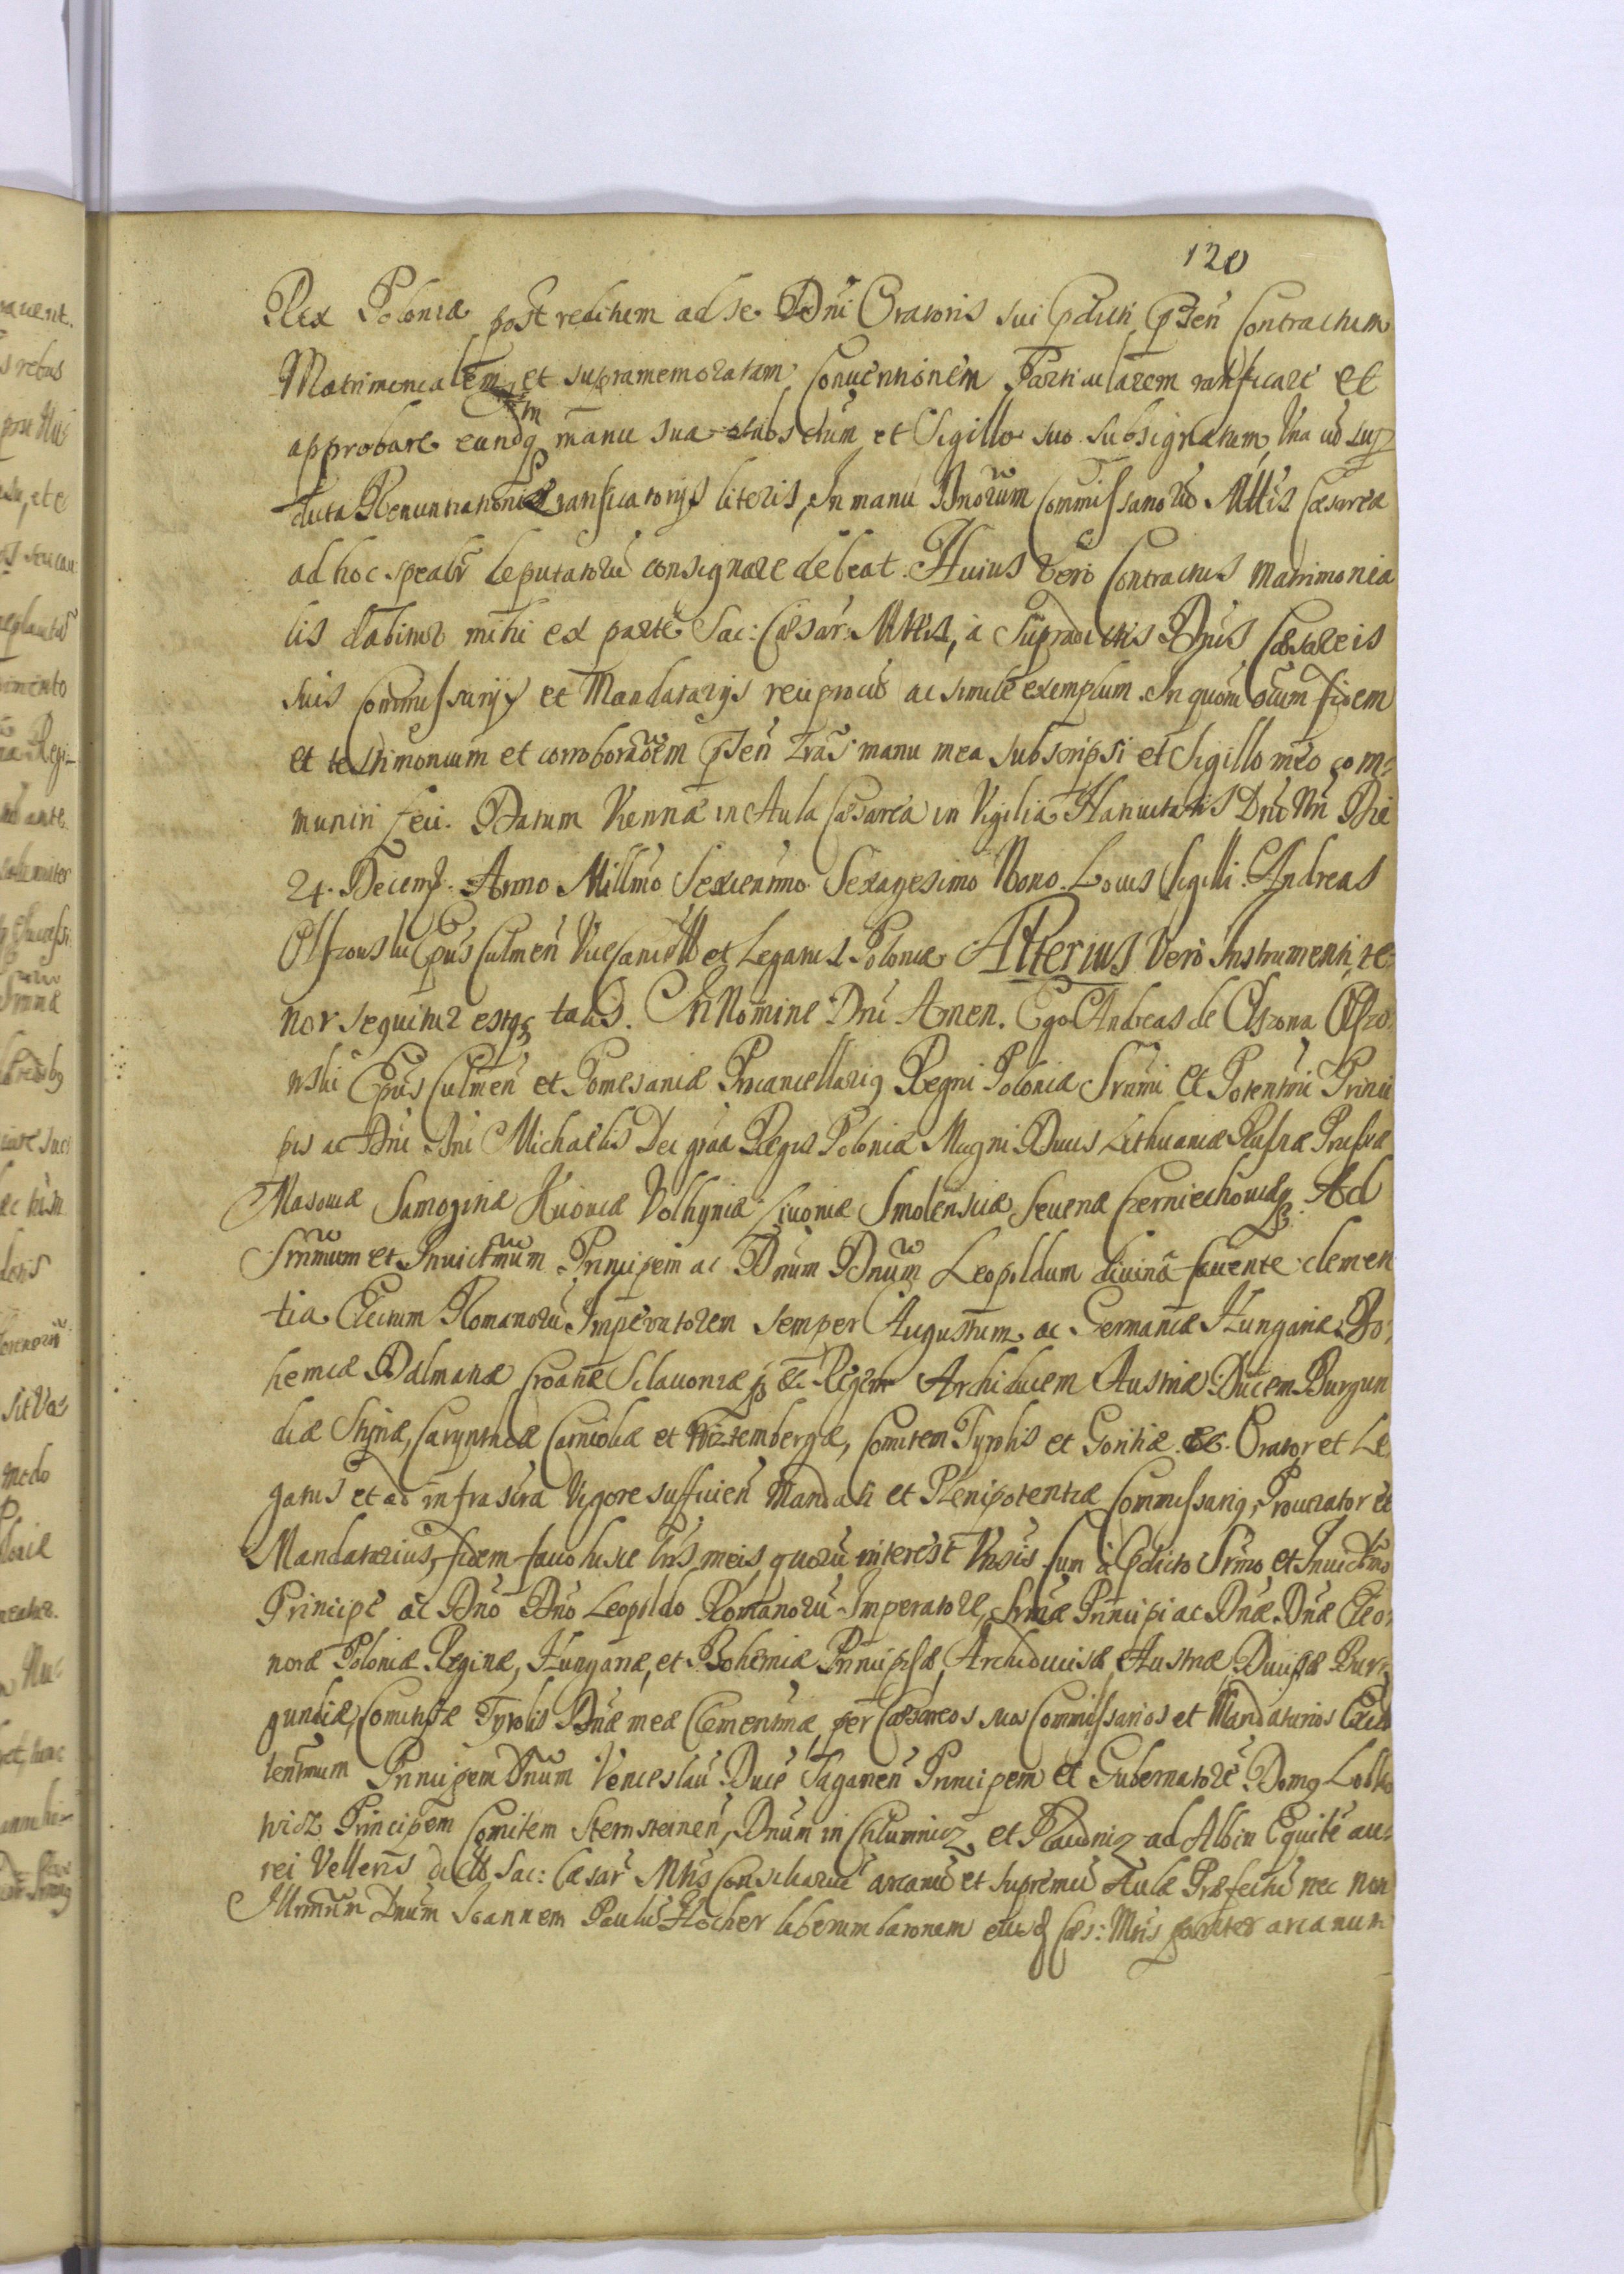 120
Rex Poloniæ post reditum ad se Dni Oratoris sui pdicti pñten Contractum
Matrimonialem et supramemoratam Conventionem Particularem ratificare et
approbare eundq manu sua subsctum et Sigillo suo subsignatum, Una cũ sup
dicta Renuntiationis ratificatorijs literis, In manu Dnorum Commissariorũ Mttis Cæsareæ
ad hoc spealr deputatorũ consignare debeat. Huius vero Contractus Matrimonia
lis dabitur mihi ex parte Sac: Cæsar: Mttis, à Supradictis Dnis Cæsareis
suis Commissarijs et Mandatarijs reciprocũ ac simile exemplum. In quorũ oĩum fidem
et testimonium et corroboraõem pñten lras manu mea subscripsi et Sigillo meo com-
muniri feci. Datum Viennæ in Aula Cæsarea in Vigilia Nativitatis Dni Nri Die
24. Decemb. Anno Millmo Sexcentmo Sexagesimo Nono. Locus Sigilli. Andreas
Olszouski Epũs Culmeñ Vicecancell et Legatus Poloniæ Alterius Vero Instrumenti te-
nor sequitur estq talis. In Nomine Dni Amen. Ego Andreas de Olszowa Olszo-
wski Epũs Culmeñ et Pomesaniæ Procancellariq Regni Poloniæ Srmi et Potentmi Princi
pis ac Dni Dni Michaelis Dei graa Regis Poloniæ Magni Ducis Lithuaniæ Russiæ Prussiæ
Masoviæ Samogitiæ Kijoviæ Volhyniæ Livoniæ Smolensciæ Severiæ Czerniechoviæq Ad
Srmum et Invictmum Principem ac Dnum Dnum Leopoldum divina favente clemen
tia Electum Romanorũ Imperatorem semper Augustum ac Germaniæ Hungariæ Bo-
hemiæ Dalmatiæ Croatiæ Sclavoniæ &c Regem Archiducem Austriæ Ducem Burgun
diæ Styriæ, Carynthiæ Carniolæ et Wirtembergæ, Comitem Tyrolis et Goritiæ &c. Orator et Le
gatus et ad infrascra Vigore sufficien Mandati et Plenipotentiæ Commissariq, Procurator et
Mandatarius, fidem facio hisce lris meis quorũ interest Missus sum à pdicto Srmo et Invictmo
Principe ac Dno Dno Leopoldo Romanorũ Imperatore, Srmæ Principi ac Dnæ Dnæ Eleo-
noræ Poloniæ Reginæ, Hungariæ, et Bohemiæ Principissæ, Archiducissæ Austriæ Ducissæ Bur-
gundiæ, Comitissæ Tyrolis Dnæ meæ Clementmæ, per Cæsareos suos Commissarios et Mandatarios Excel
lentmum Principem Dnum Venceslaũ Ducẽ Saganeñ Principem et Gubernatorẽ Domq Lobko
wicz Principem Comitem Sternsteinen, Dnum in Chlumnicz et Raudniz ad Albin Equitẽ au-
rei Velleris dictæ Sac: Cæsar Mttis Consiliariũ arcanũ et supremũ Aulæ Præfectũ nec non
Illrmum Dnum Joannem Paulũ Hocher liberum baronem eiusd Cæs: Mtis pariter arcanum